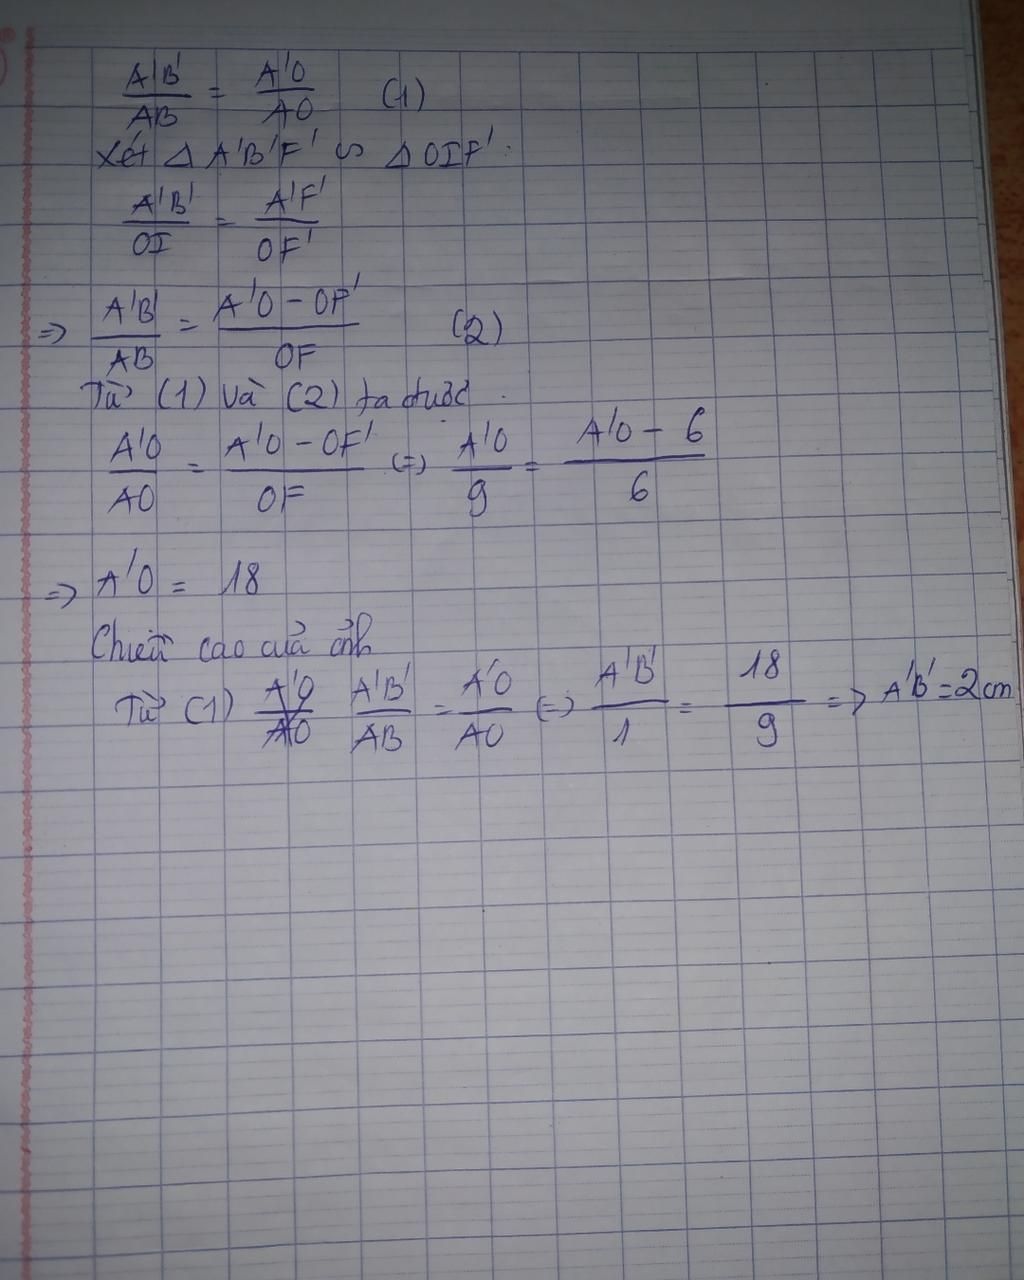 A'B'/AB = A'O/AO (1)
Xét Δ A'B'F' ∽ Δ OIF'.
A'B'/OI = A'F'/OF'
=> A'B'/AB = (A'O - OF')/OF (2)
Từ (1) và (2) ta được.
A'O/AO = (A'O - OF')/OF (=) A'O/9 = (A'O - 6)/6
=> A'O = 18
Chiều cao của ảnh
Từ (1) A'O/AO A'B'/AB = A'O/AO (=) A'B'/1 = 18/9 => A'B' = 2 cm